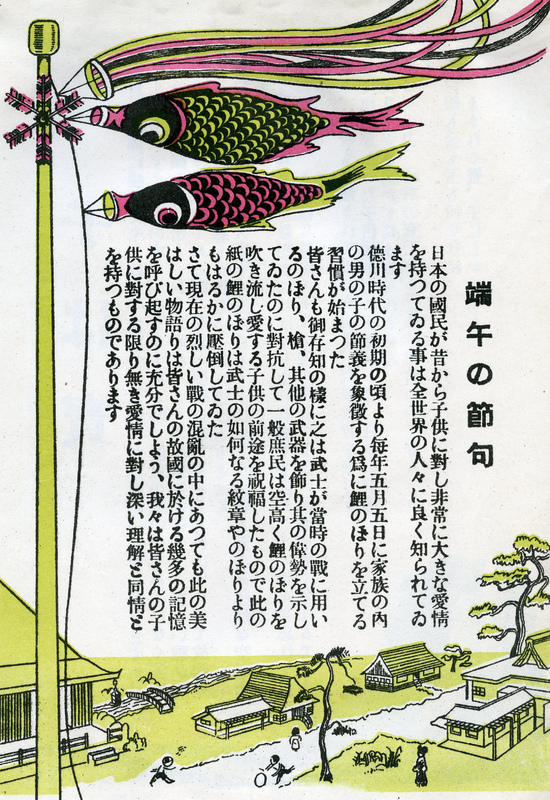 端午の節句
日本の國民が昔から子供に對し非常に大きな愛情
を持つてゐる事は全世界の人々に良く知られてゐ
ます
德川時代の初期の頃より每年五月五日に家族の內
の男の子の節義を象徵する爲に鯉のぼりを立てる
習慣が始まつた
皆さんも御存知の樣に之は武士が當時の戰に用い
るのぼり、槍、其他の武器を飾り其の偉勢を示し
てゐたのに對抗して一般庶民は空高く鯉のぼりを
吹き流し愛する子供の前途を祝福したもので此の
紙の鯉のぼりは武士の如何なる紋章やのぼりより
もはるかに壓倒してゐた
さて現在の烈しい戰の混亂の中にあつても此の美
はしい物語りは皆さんの故國に於ける幾多の記憶
を呼び起すのに充分でしよう、我々は皆さんの子
供に對する限り無き愛情に對し深い理解と同情と
を持つものであります